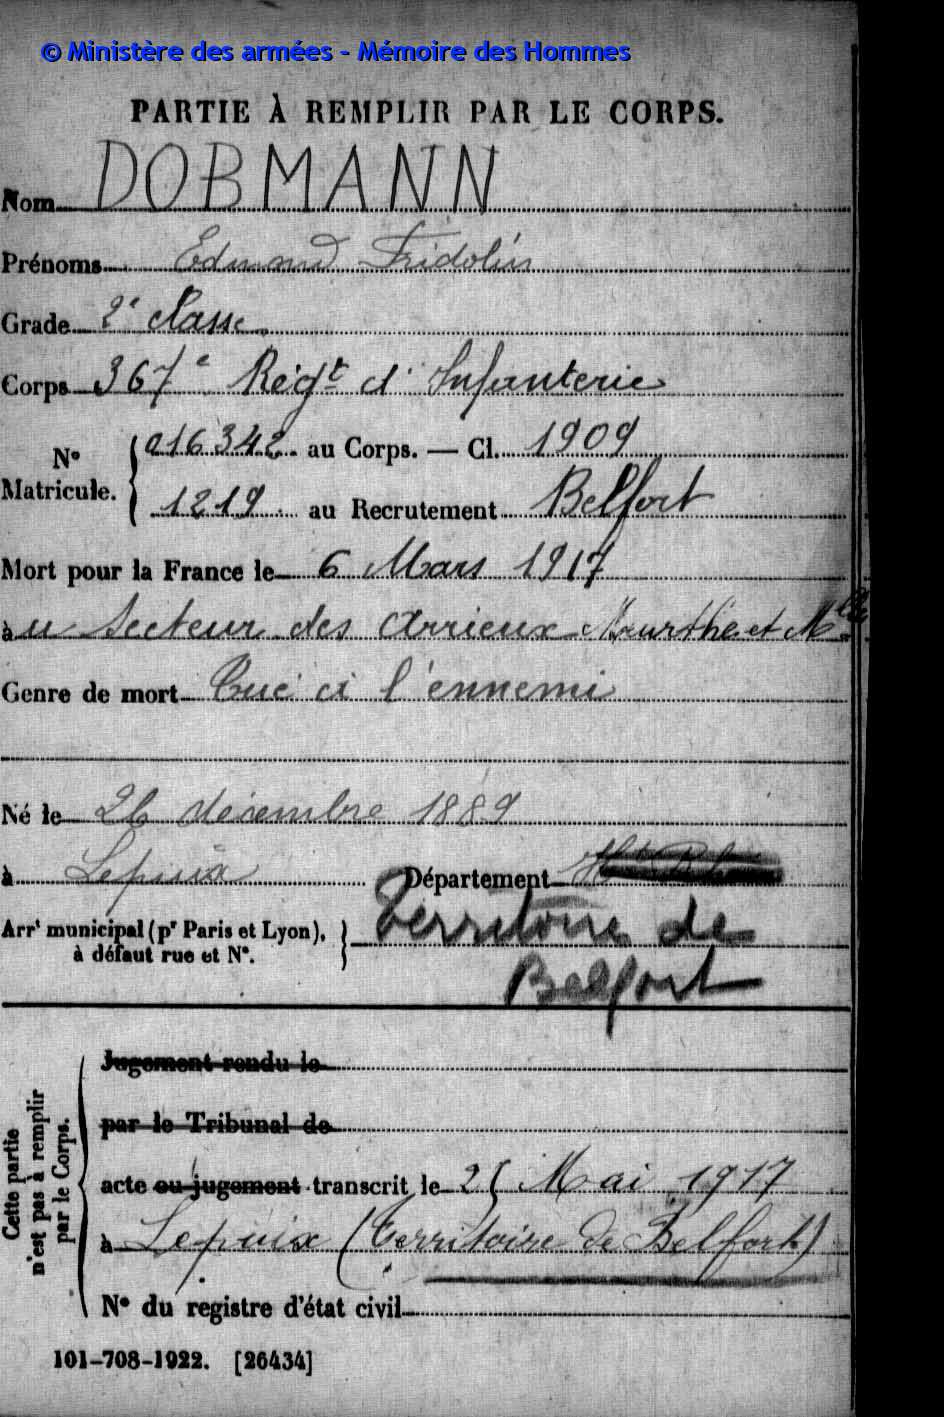 © Ministère des armées - Mémoire des Hommes
PARTIE À REMPLIR PAR LE CORPS.
Nom DOBMANN
Prénoms Edmond Fridolin
Grade 2e classe
Corps 367e Régt d'Infanterie
N° Matricule. 016342 au Corps. — Cl. 1909
1219 au Recrutement Belfort
Mort pour la France le 6 Mars 1917
à u Secteur des Arrieux Meurthe et Mlle
Genre de mort Tué à l'ennemi
Né le 26 décembre 1889
à Lepuix Département Ht Rhin
Arrt municipal (pr Paris et Lyon), à défaut rue et N°. Territoire de
Belfort
Cette partie n'est pas à remplir par le Corps.
Jugement rendu le
par le Tribunal de
acte ou jugement transcrit le 25 Mai 1917
à Lepuix (Territoire de Belfort)
N° du registre d'état civil
101-708-1922. [26434]